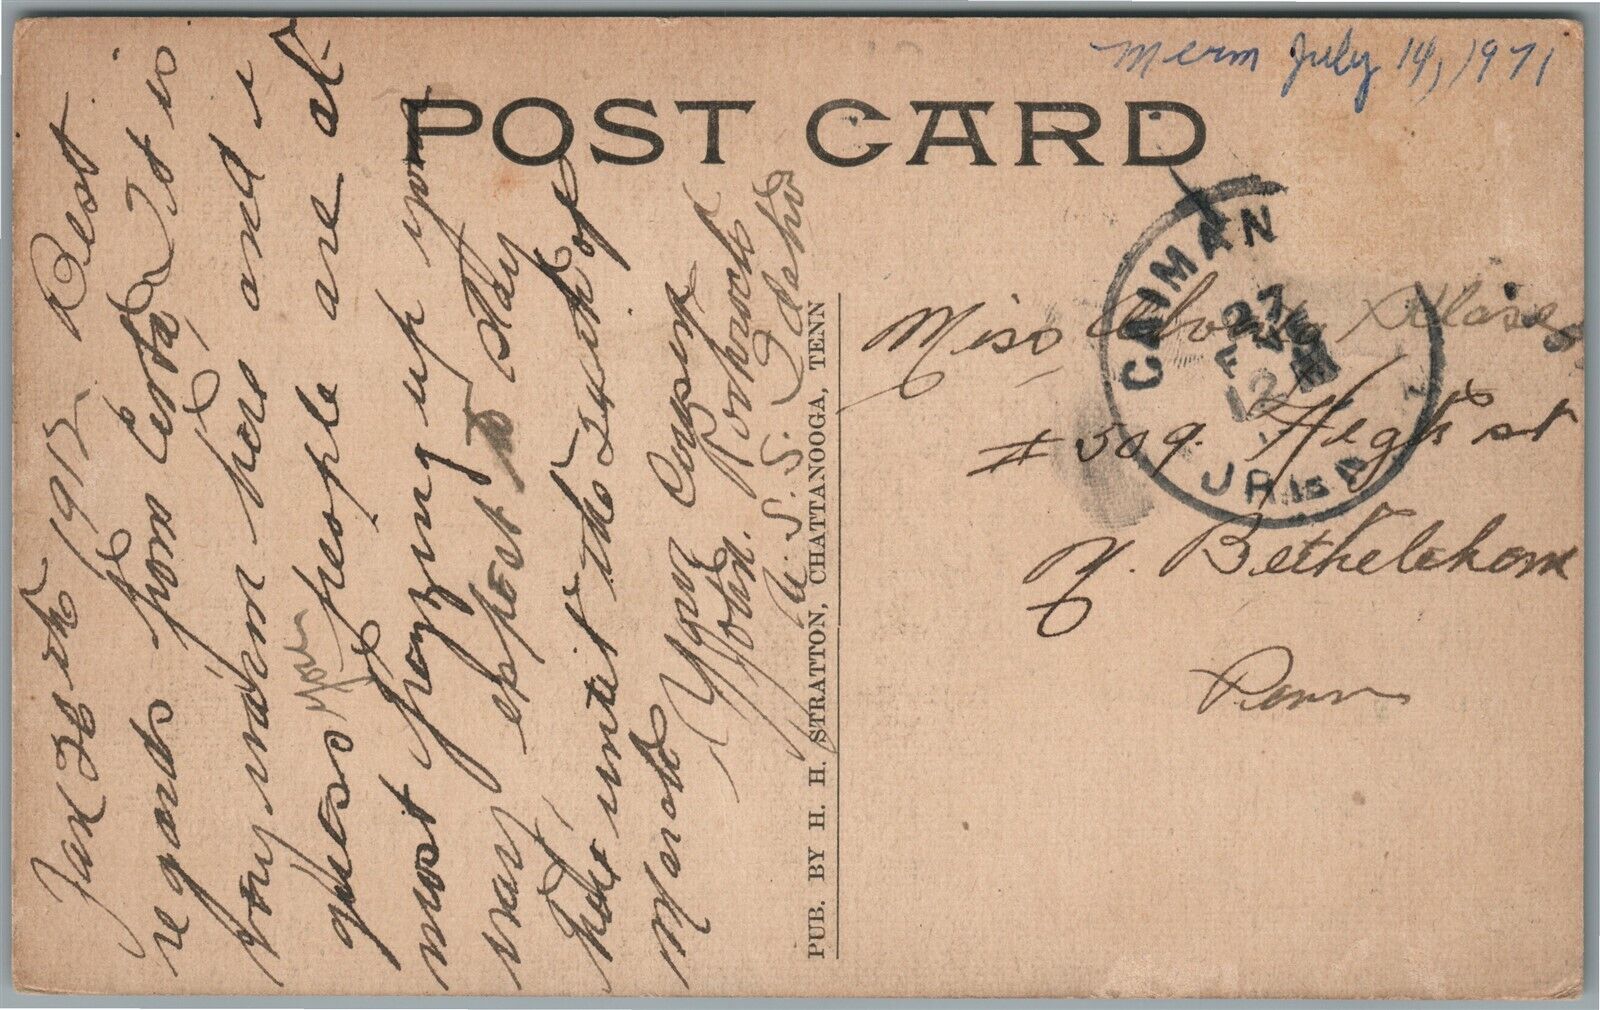 Merm July 14, 1971
POST CARD
Jan 26th 1912 Best
regards from Cuba It is
very warm here and i
guess your people are at
most frazing up your
way expect to stay
here untill the 20th of
March
Your Cousin
John.
U. S. S. Idaho
PUB. BY H. H. STRATTON, CHATTANOOGA, TENN
CAIMAN
27
12
Miss
# 509. High st
N. Bethelehem
Penn